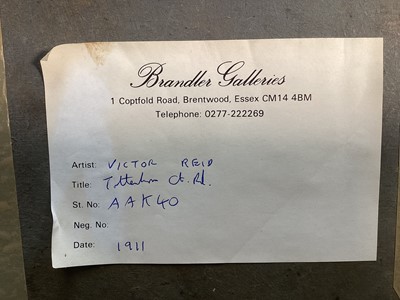 Brandler Galleries
1 Coptfold Road, Brentwood, Essex CM14 4BM
Telephone: 0277-222269
Artist: VICTOR REID
Title: Tottenham Ct. Rd.
St. No: AAK40
Neg. No:
Date: 1911